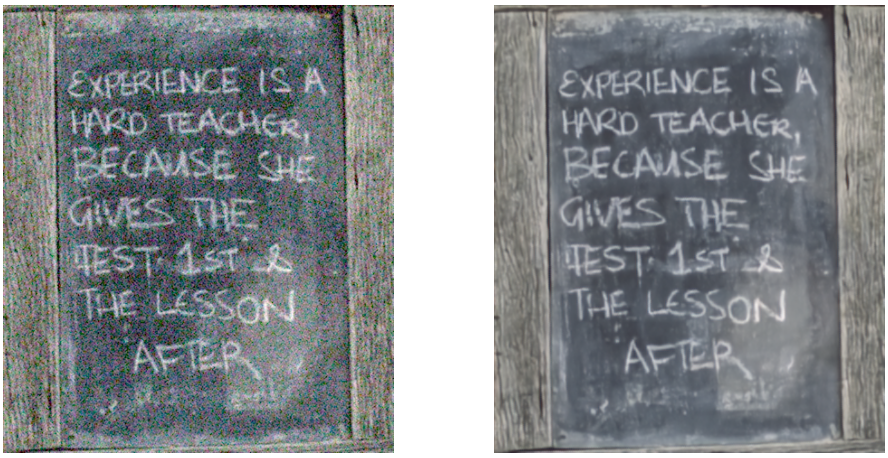 EXPERIENCE IS A
HARD TEACHER,
BECAUSE SHE
GIVES THE
TEST 1ST &
THE LESSON
AFTER
EXPERIENCE IS A
HARD TEACHER,
BECAUSE SHE
GIVES THE
TEST 1ST &
THE LESSON
AFTER